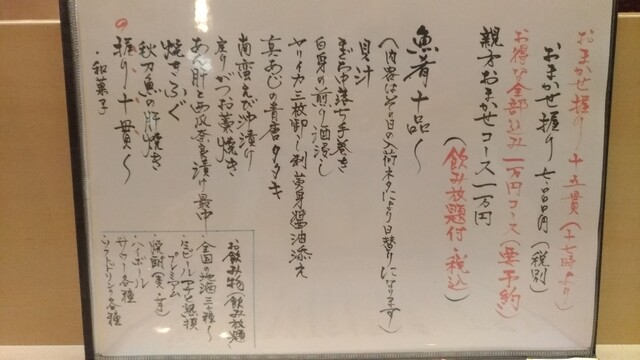 おまかせ握り十五貫(十七時より)
おまかせ握り 七、品円(税別)
お得な全部込み一万円コース(要予約)
親方おまかせコース一万円
(飲み放題付・税込)
魚肴十品〜
(内容はその日の入荷ネタにより日替りになります)
貝汁
まぐろ中落ち手巻き
白身の煎り酒浸し
ヤリイカ三枚卸し刺
醤油添え
真あじの青唐タタキ
南蛮えび沖漬け
戻りがつお藁焼き
あん肝と西瓜奈良漬け最中
焼きふぐ
秋刀魚の肝焼き
握り十貫〜
・和菓子
お飲み物(飲み放題)
・全国の地酒三種〜
・生ビール
プレミアム
・焼酎(麦・芋)
・ハイボール
・サワー各種
・ソフトドリンク各種